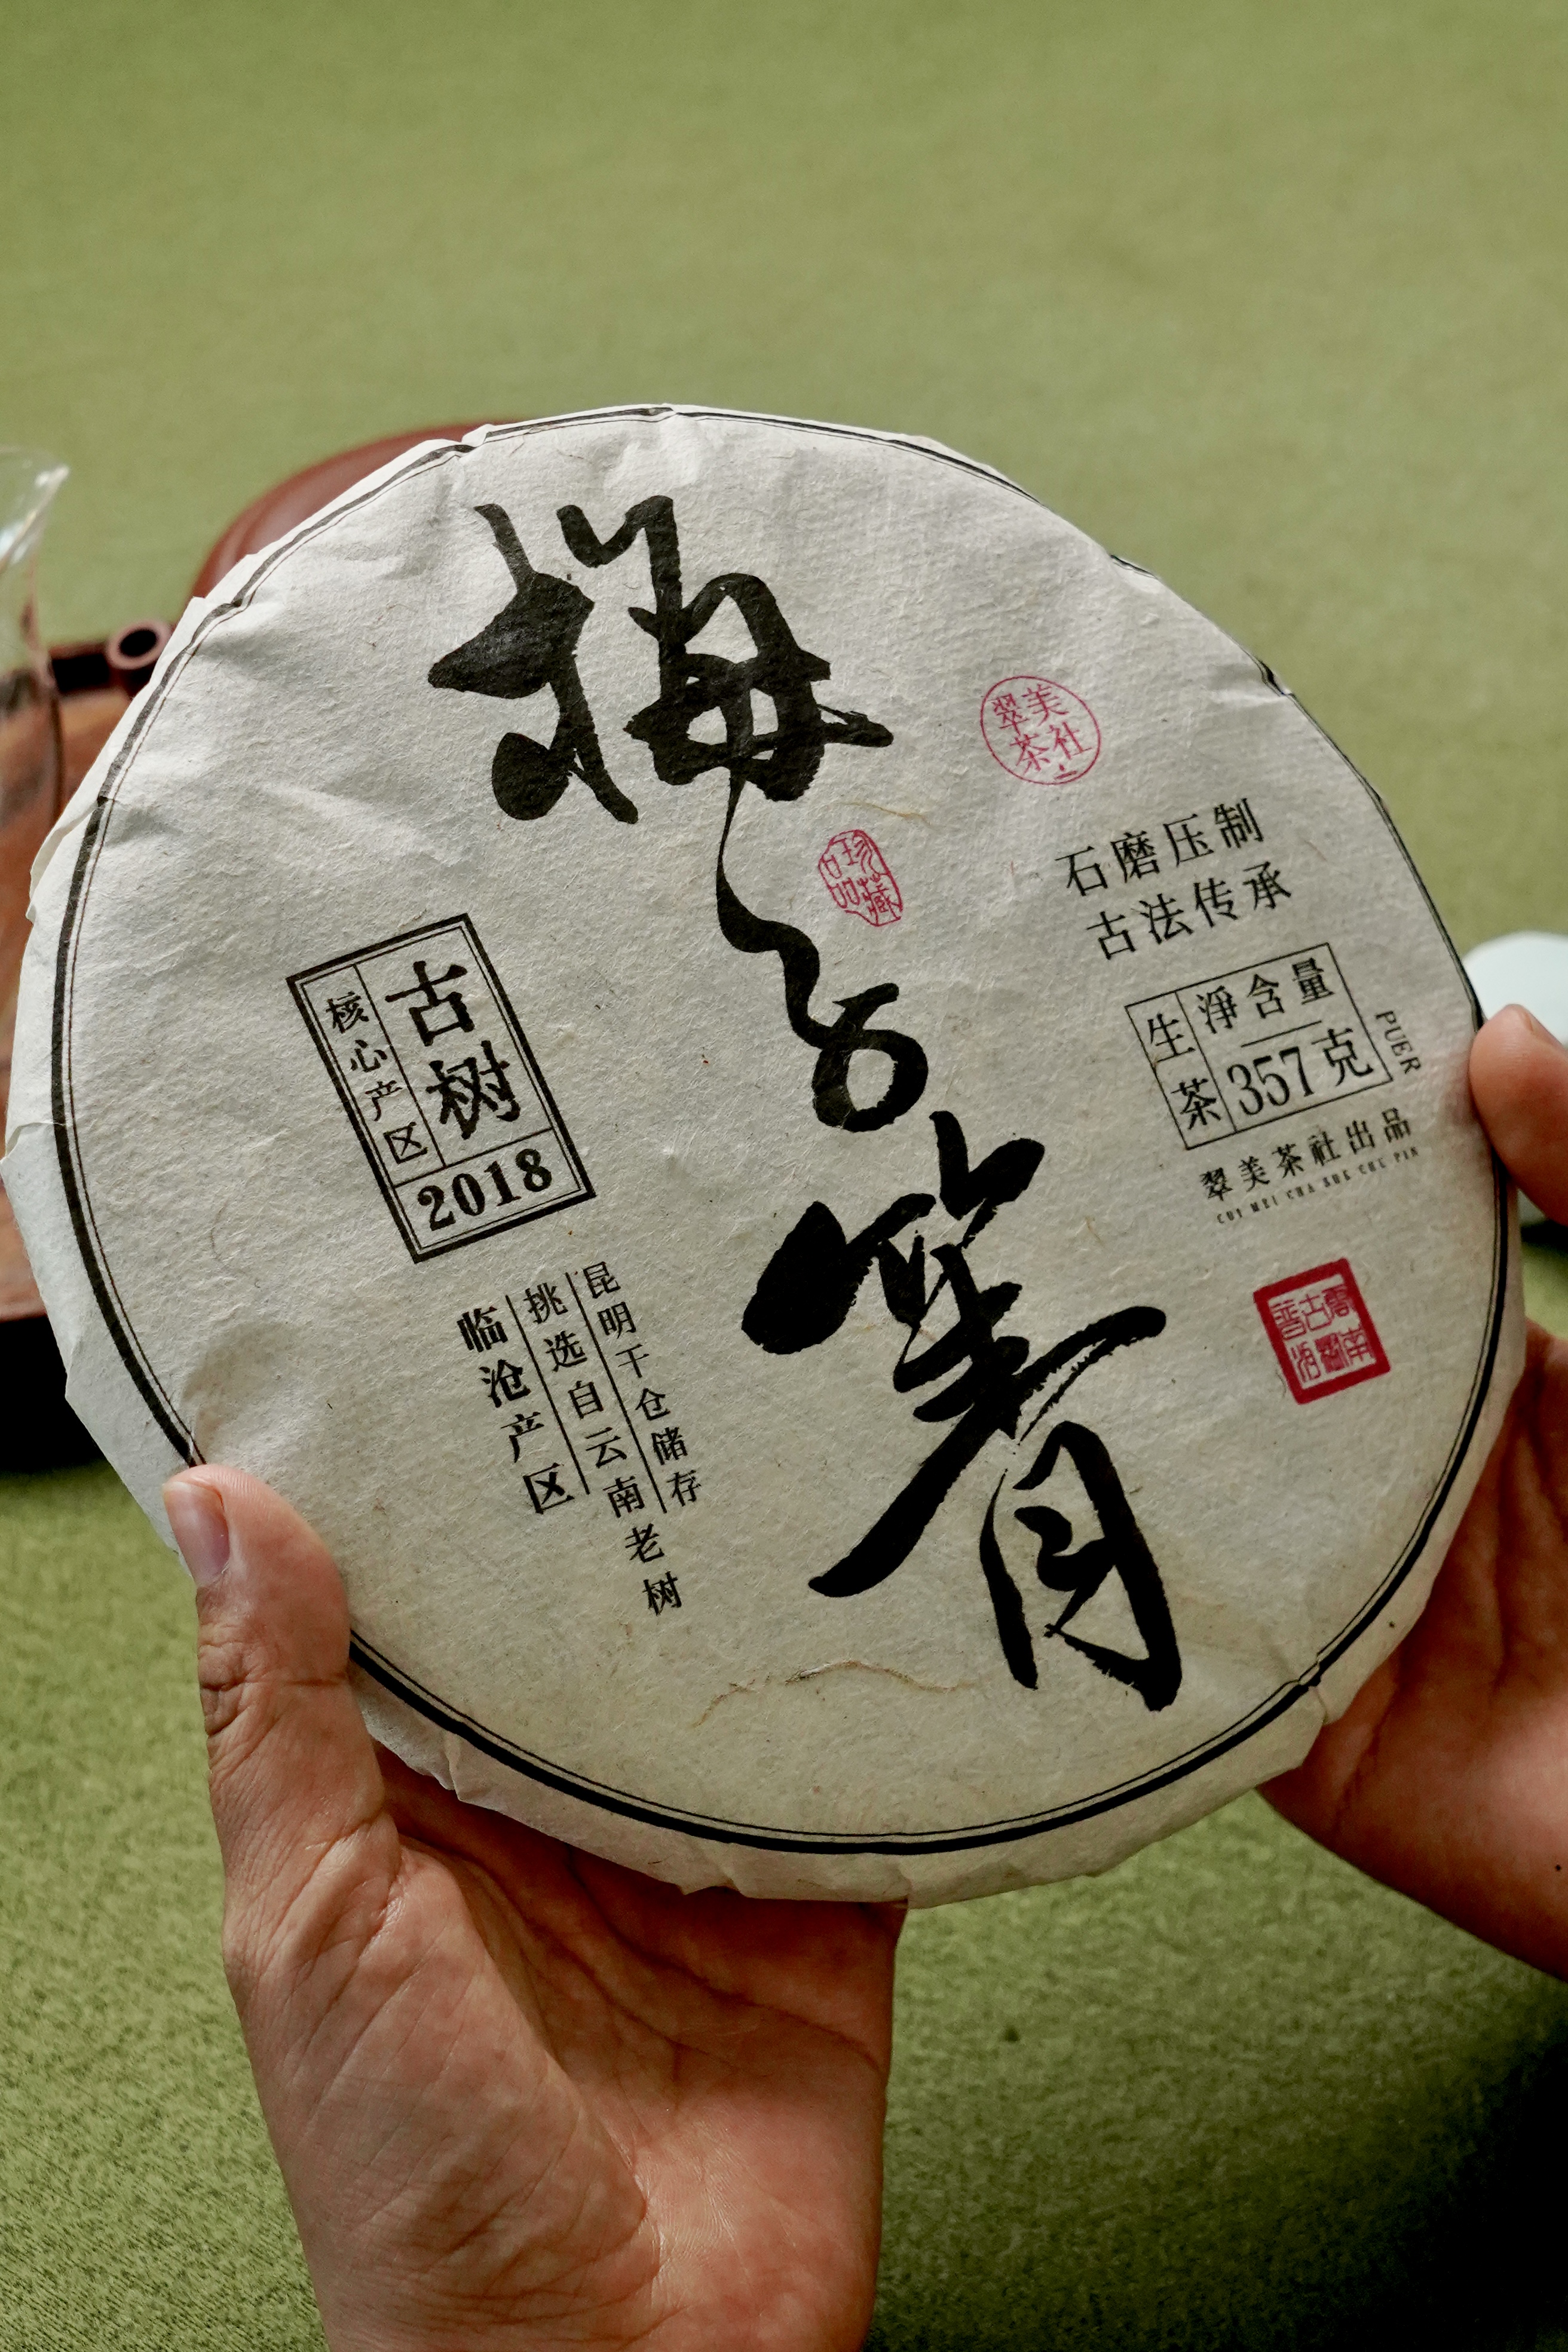 梅子箐
翠美
茶社
珍藏
品
石磨压制
古法传承
生茶
淨含量
357克
PUER
翠美茶社出品
CUI MEI CHA SHE CHU PIN
云南
古树
普洱
古树
核心产区
2018
昆明干仓储存
挑选自云南老树
临沧产区